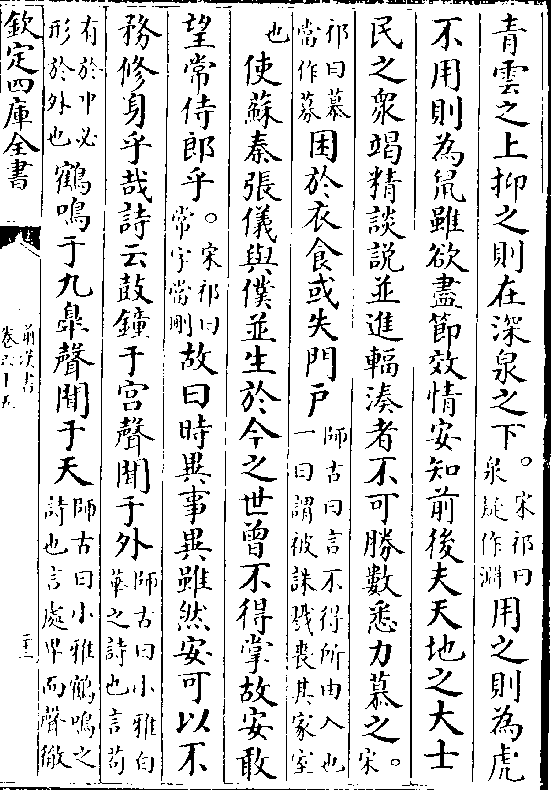 青雲之上抑之則在深泉之下。宋祁曰泉疑作淵用之則為虎
不用則為鼠雖欲盡節效情安知前後夫天地之大士
民之衆竭精談説並進輻湊者不可勝數悉力慕之。宋
祁曰慕當作募困於衣食或失門戶師古曰言不得所由入也一曰謂被誅戮喪其家室
也使蘇秦張儀與僕並生於今之世曾不得掌故安敢
望常侍郎乎。宋祁曰常字當刪故曰時異事異雖然安可以不
務修身乎哉詩云鼓鐘于宫聲聞于外師古曰小雅白華之詩也言苟
有於中必形於外也鶴鳴于九臯聲聞于天師古曰小雅鶴鳴之詩也言處卑而聲徹
欽定四庫全書
前漢書
卷六十五